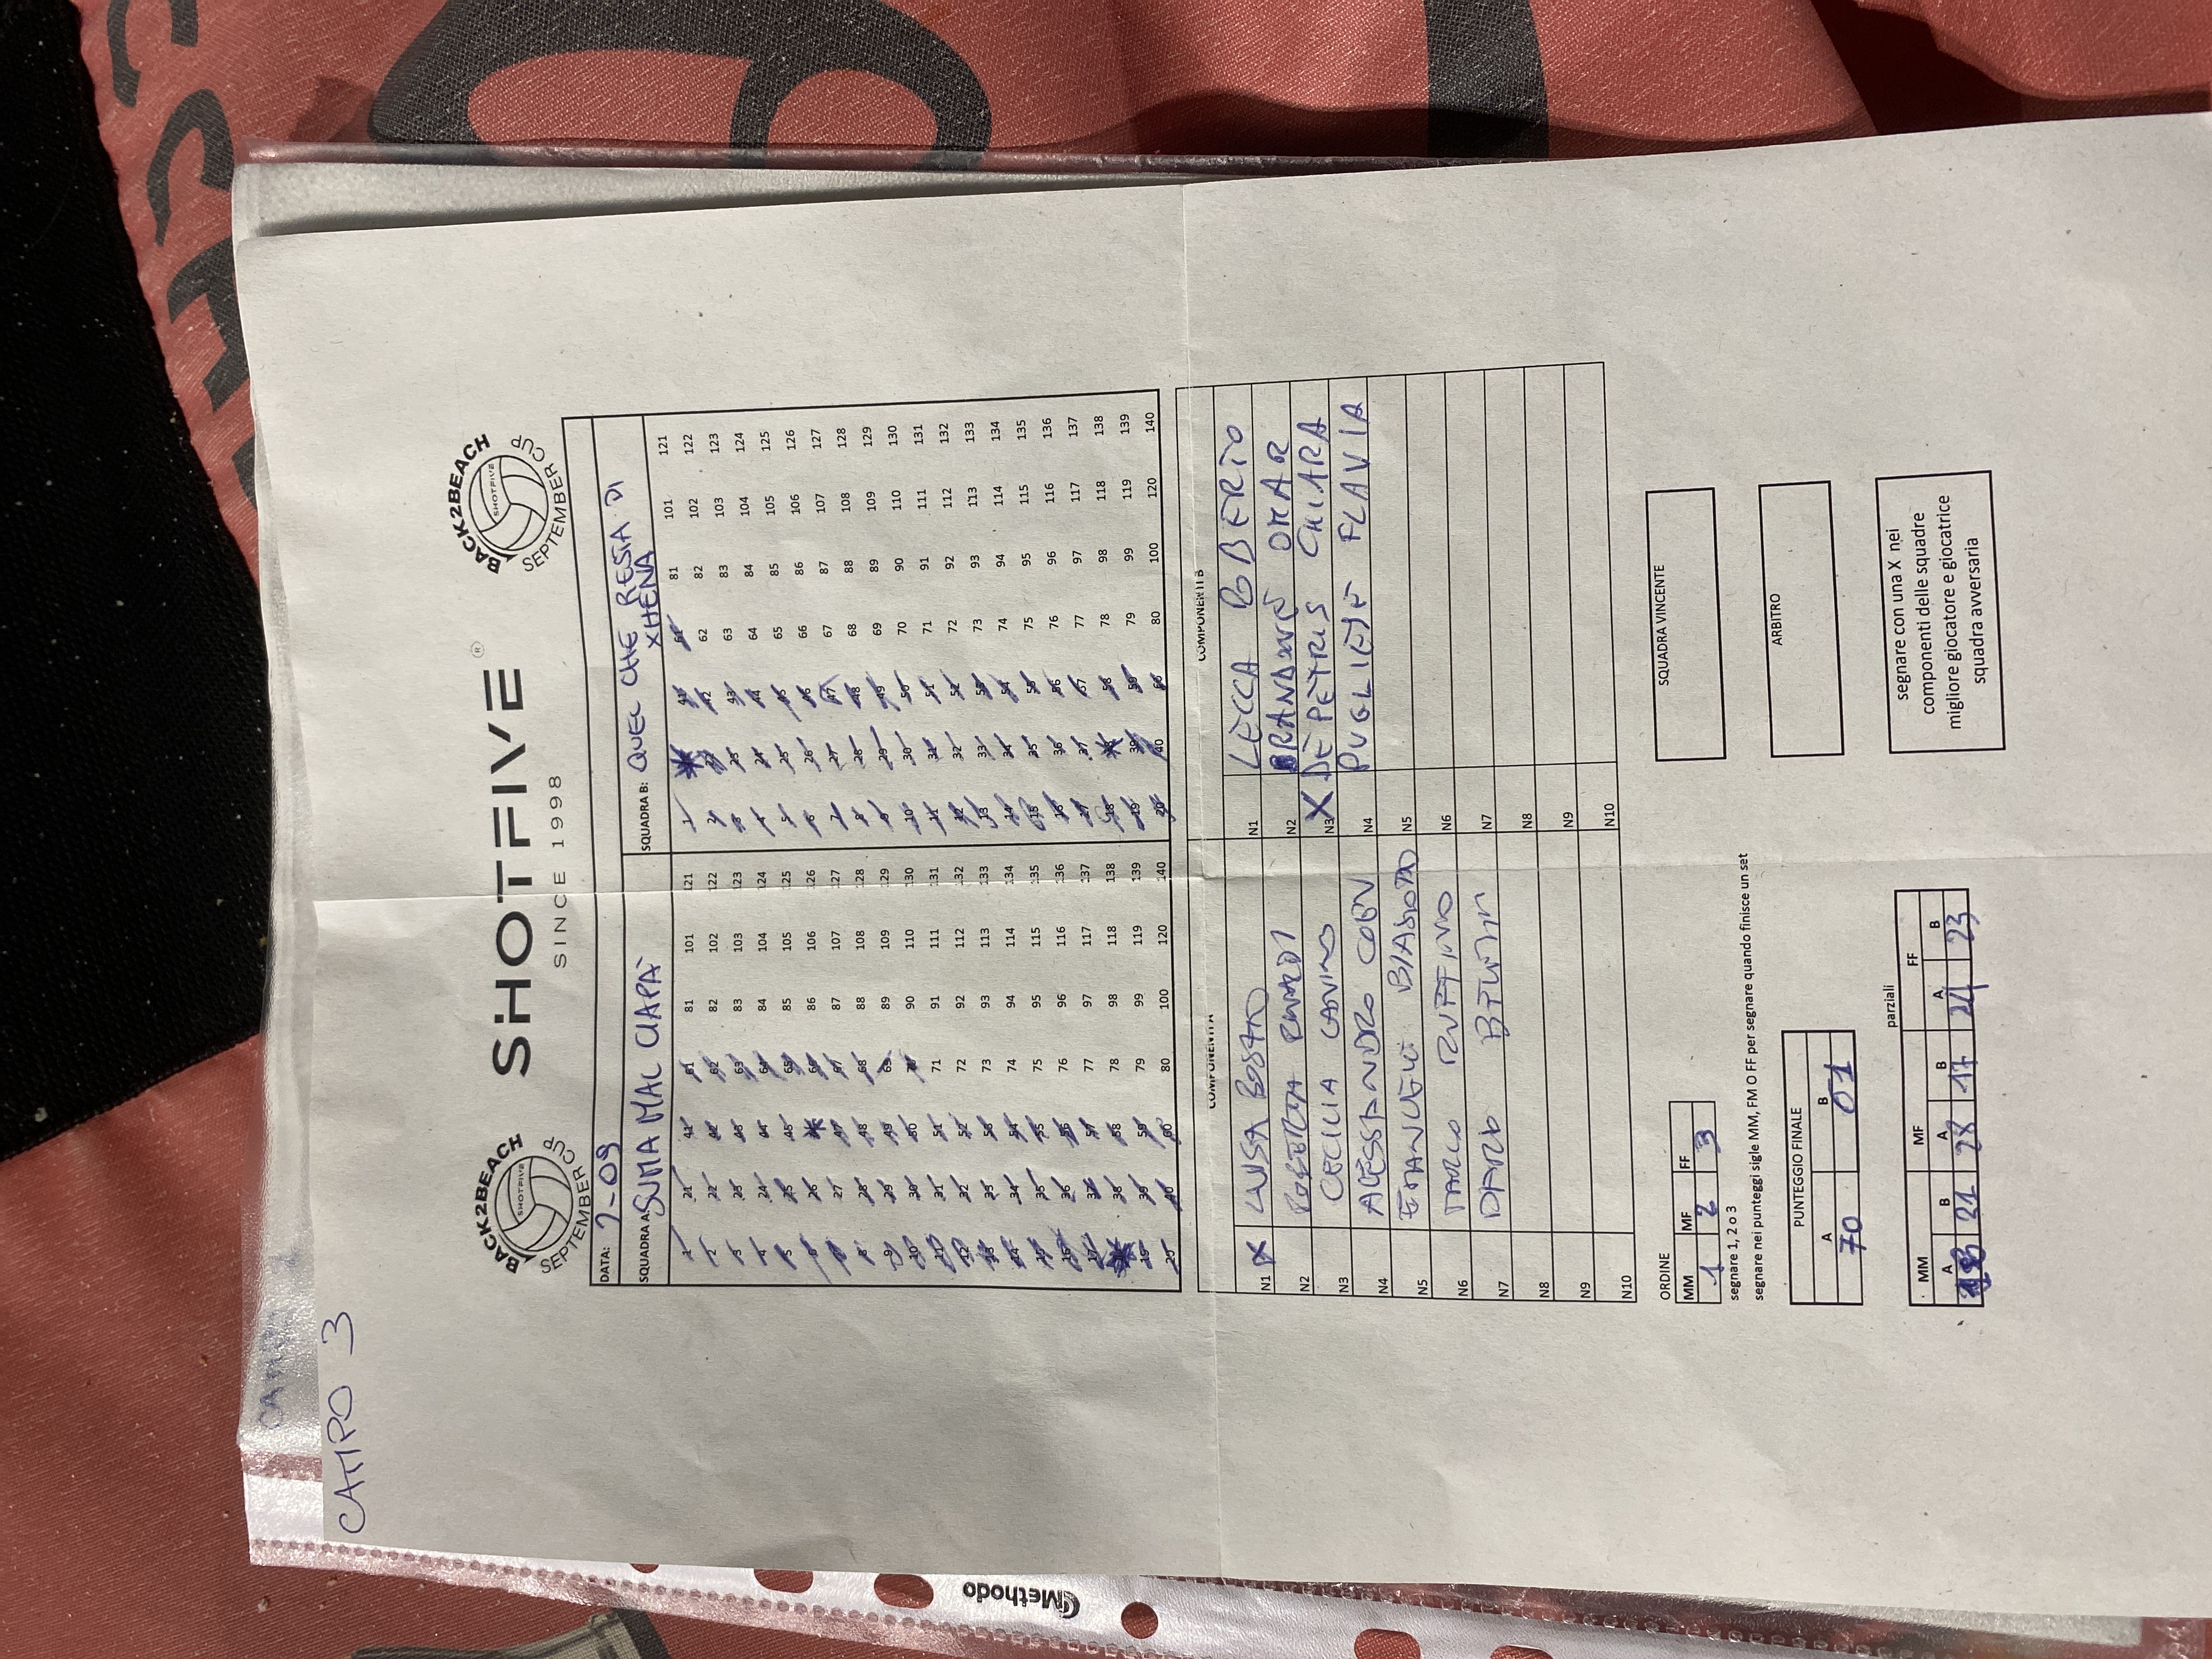 CAMPO 3
BACK2BEACH
SHOTFIVE
SEPTEMBER CUP
SHOTFIVE ®
SINCE 1998
BACK2BEACH
SHOTFIVE
SEPTEMBER CUP
DATA: 7-09
SQUADRA A: SUMA MAL CIAPÀ
SQUADRA B: QUEL CHE RESTA DI
XHENA
1 21 41 61 81 101 121 1 41 61 81 101 121
2 22 42 62 82 102 122 2 22 42 62 82 102 122
3 23 43 63 83 103 123 3 23 43 63 83 103 123
4 24 44 64 84 104 124 4 24 44 64 84 104 124
5 25 45 65 85 105 125 5 25 45 65 85 105 125
6 26 66 86 106 126 6 26 46 66 86 106 126
7 27 47 67 87 107 127 7 27 47 67 87 107 127
8 28 48 68 88 108 128 8 28 48 68 88 108 128
9 29 49 69 89 109 129 9 29 49 69 89 109 129
10 30 50 70 90 110 130 10 30 50 70 90 110 130
11 31 51 71 91 111 131 11 31 51 71 91 111 131
12 32 52 72 92 112 132 12 32 52 72 92 112 132
13 33 53 73 93 113 133 13 33 53 73 93 113 133
14 34 54 74 94 114 134 14 34 54 74 94 114 134
15 35 55 75 95 115 135 15 35 55 75 95 115 135
16 36 56 76 96 116 136 16 36 56 76 96 116 136
17 37 57 77 97 117 137 17 37 57 77 97 117 137
38 58 78 98 118 138 18 58 78 98 118 138
19 39 59 79 99 119 139 19 39 59 79 99 119 139
20 40 60 80 100 120 140 20 40 60 80 100 120 140
COMPONENTI A COMPONENTI B
N1 X LUISA N1 LECCA ROBERTO
N2 ROBERTA N2 OMAR
N3 CECILIA N3 X DE PETRIS CHIARA
N4 ALESSANDRO N4 PUGLIESE FLAVIA
N5 EMANUELE N5
N6 MARCO RUFFINO N6
N7 DARIO N7
N8 N8
N9 N9
N10 N10
ORDINE
MM MF FF
1 2 3
segnare 1, 2 o 3
segnare nei punteggi sigle MM, FM O FF per segnare quando finisce un set
SQUADRA VINCENTE
PUNTEGGIO FINALE
A B
70 61
ARBITRO
parziali
MM MF FF
A B A B A B
18 21 28 17 24 23
segnare con una X nei
componenti delle squadre
migliore giocatore e giocatrice
squadra avversaria
Methodo